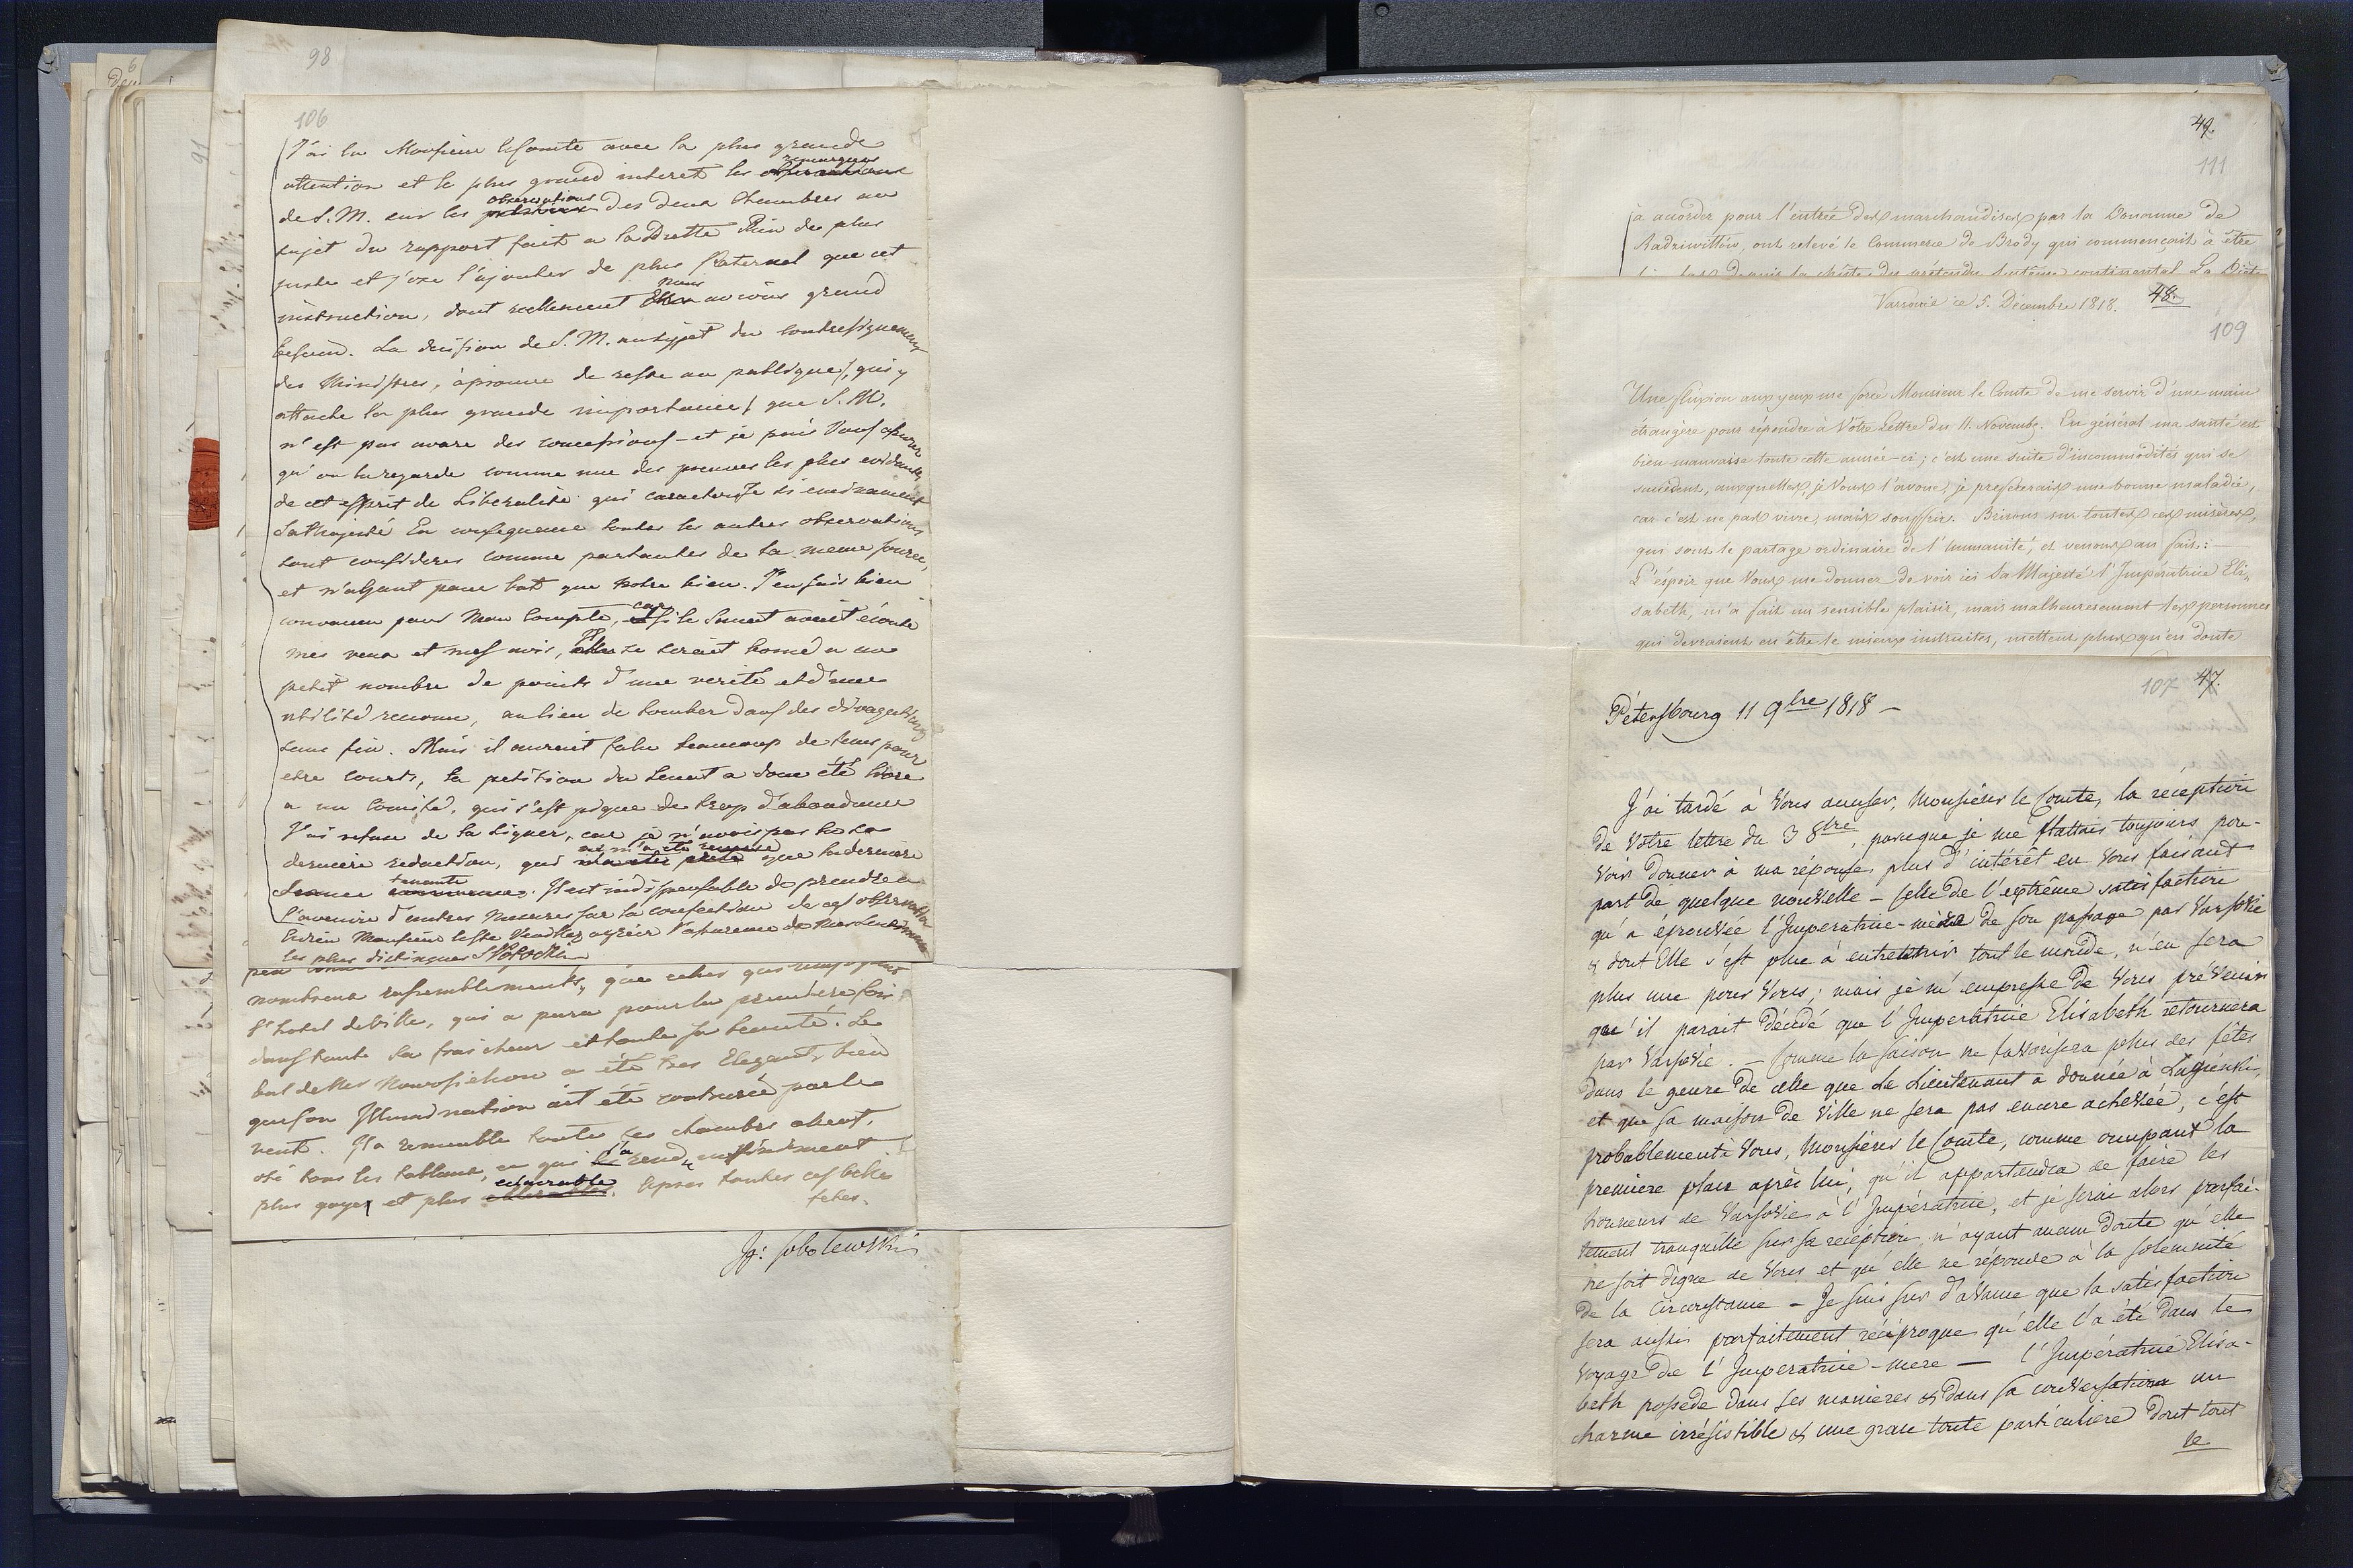 98
106
J'ai lu Monsieur le Comte avec la plus grande
attention et le plus grand interet les remarques
de S. M. sur les observations des deux Chambres au
sujet du rapport fait a la Diette Rien de plus
juste et j'ose l'ajouter de plus Paternel que cet
instruction, dont reellement nous avions grand
besoin. La decision de S. M. au sujet du contresignement
des Ministres, a prouvé de reste au publique, qui y
attache la plus grande importance, que S. M.
n'est pas avare des concessions - et je puis Vous assurer
qu'on la regarde comme une des preuves les plus evidentes
de cet esprit de Liberalité qui caracterise si eminament
Sa Majesté En consequence toutes les autres observations
sont consideres comme partantes de la meme source,
et n'ayant pour but que notre bien. J'en suis bien
convaincu pour mon compte, car si le Senat avait écouté
mes vœux et mes avis, il se serait borné a un
petit nombre de points d'une verité et d'une
utilité reconnue, au lieu de tomber dans des divagations
sans fin. Mais il aurait falu beaucoup de tems pour
etre courts, la petition du Senat a donc été livré
a un Comité, qui s'est piqué de trop d'abondance
J'ai refusé de la signer, car je n'avois pas lu la
derniere redaction, qui ne m'a été remise que la derniere
séance tenante. Il est indispensable de prendre a
l'avenir d'autres mesures sur la confection de ces observations
Adieu Monsieur le Cte Veuillez agréer l'assurance de mes Sentimens
les plus distingués SPotocki
nombreux rassemblements, que celles qui
l'hotel de Ville, qui a paru pour la premiere fois
dans toute sa fraicheur et toute sa beauté. Le
bal de Mr Nowosielzow a été tres Elegant, bien
que son Illumination ait été contrariée par le
vent. Il a remeublé toutes ses chambres et
oté tous les tableaux, ce qui l'a rendu infiniment
plus gaye et plus eclairable. Apres toutes ces belles
fetes.
Ig: Sobolewski
49.
111
à accorder pour l'entrée des marchandises par la Douanne de
Radziwiłłów, ont relevé le Commerce de Brody qui commençait à être
depuis la chûte du prétendu Systême continental La Diète
Varsovie ce 5. Décembre 1818. 48.
109
Une fluxion aux yeux me force Monsieur le Comte de me servir d'une main
étrangère pour répondre à Votre Lettre du 11. Novembr. En général ma santé est
bien mauvaise toute cette année-ci; c'est une suite d'incommodités qui se
succèdent, auxquelles, je Vous l'avoue, je préfèrerais une bonne maladie,
car c'est ne pas vivre, mais souffrir. Brisons sur toutes ces misères,
qui sont le partage ordinaire de l'humanité, et venons au fait:—
L'éspoir que Vous me donnez de voir ici Sa Majesté l'Impératrice Eli,,
sabeth, m'a fait un sensible plaisir, mais malheureusement les personnes
qui devraient en être le mieux instruites, mettent plus qu'en doute
107 47.
Pétersbourg 11 9bre 1818 —
J'ai tardé à Vous accuser, Monsieur le Comte, la réception
de Votre lettre du 3 8bre, parceque je me flattais toujours pou-
voir donner à ma réponse plus d'intérêt en Vous faisant
part de quelque nouvelle — Celle de l'extrême satisfaction
qu'a éprouvée l'Imperatrice-mère de son passage par Varsovie
& dont Elle s'est plue à entretenir tout le monde, n'en sera
plus une pour Vous; mais je m'empresse de Vous prévenir
qu'il parait décidé que l'Imperatrice Elisabeth retournera
par Varsovie. — Comme la saison ne favorisera plus des fêtes
dans le genre de celle que le Lieutenant a donnée à Łaziénki,
et que sa maison de Ville ne sera pas encore achevée, c'est
probablement à Vous, Monsieur le Comte, comme occupant la
premiere place après lui, qu'il appartiendra de faire les
honneurs de Varsovie à l'Impératrice, et je serai alors parfai-
tement tranquille sur sa réception n'ayant aucun doute qu'elle
ne soit digne de Vous et qu'elle ne réponde à la solemnité
de la circonstance — Je suis sur d'avance que la satisfaction
sera aussi parfaitement réciproque qu'elle l'a été dans le
voyage de l'Imperatrice-mere — l'Impératrice Elisa-
beth possede dans ses manieres & dans sa conversation un
charme irrésistible & une grace toute particuliere dont tout
le